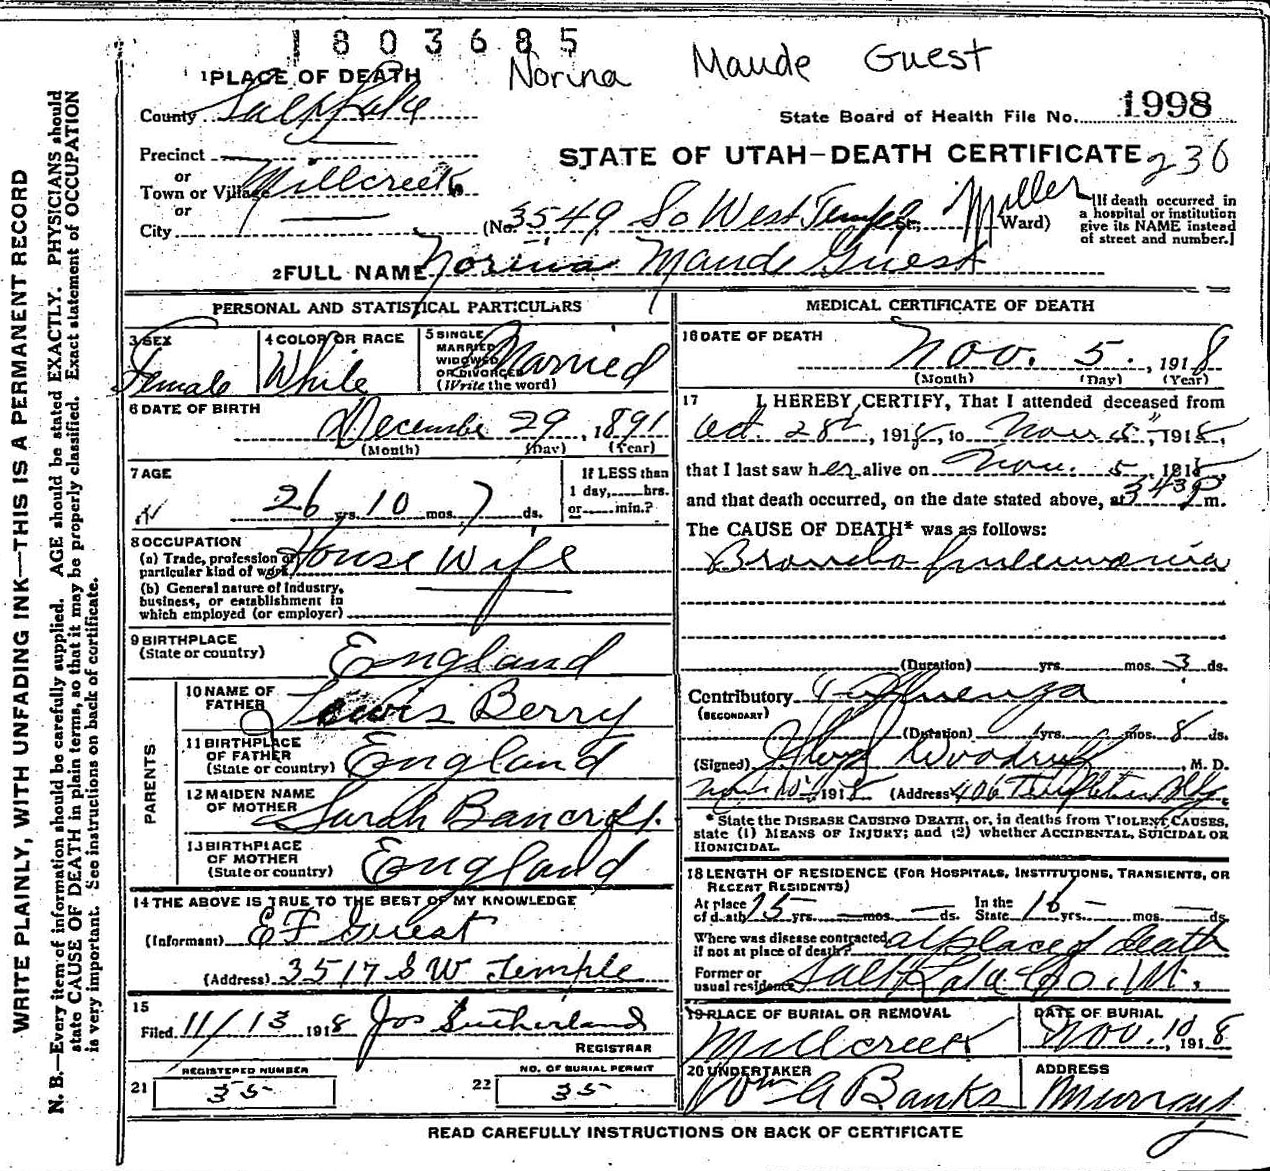 1803685
Norina Maude Guest
1 PLACE OF DEATH
County Salt Lake
State Board of Health File No. 1998
Precinct
STATE OF UTAH—DEATH CERTIFICATE 236
or
Town or Village Millcreek
or
City
(No. 3549 So West Temple St.; Miller Ward)
[If death occurred in
a hospital or institution
give its NAME instead
of street and number.]
2 FULL NAME Norina Maude Guest
PERSONAL AND STATISTICAL PARTICULARS
3 SEX
Female
4 COLOR OR RACE
White
5 SINGLE
MARRIED
WIDOWED
OR DIVORCED
(Write the word)
Married
6 DATE OF BIRTH
December 29, 1891
(Month) (Day) (Year)
7 AGE
26 yrs. 10 mos. 7 ds.
If LESS than
1 day, hrs.
or min.?
8 OCCUPATION
(a) Trade, profession or
particular kind of work House Wife
(b) General nature of Industry,
business, or establishment in
which employed (or employer)
9 BIRTHPLACE
(State or country) England
PARENTS
10 NAME OF
FATHER Lewis Berry
11 BIRTHPLACE
OF FATHER
(State or country) England
12 MAIDEN NAME
OF MOTHER Sarah Bancroft.
13 BIRTHPLACE
OF MOTHER
(State or country) England
14 THE ABOVE IS TRUE TO THE BEST OF MY KNOWLEDGE
(Informant) E F Guest
(Address) 3517 S W Temple
15
Filed 11/13 1918 Jos Sutherland
REGISTRAR
21 REGISTERED NUMBER 35
22 NO. OF BURIAL PERMIT 35
MEDICAL CERTIFICATE OF DEATH
16 DATE OF DEATH
Nov. 5., 1918
(Month) (Day) (Year)
17 I HEREBY CERTIFY, That I attended deceased from
Oct. 28th, 1918, to Nov 5", 1918,
that I last saw her alive on Nov. 5 1918,
and that death occurred, on the date stated above, at 343 P m.
The CAUSE OF DEATH* was as follows:
Broncho pnuemonia
(Duration) yrs. mos. 3 ds.
Contributory Influenza
(SECONDARY)
(Duration) yrs. mos. 8 ds.
(Signed) Woodruff, M. D.
Nov 10, 1918 (Address) 406 Templeton Bldg.
*State the DISEASE CAUSING DEATH, or, in deaths from VIOLENT CAUSES,
state (1) MEANS OF INJURY; and (2) whether ACCIDENTAL, SUICIDAL OR
HOMICIDAL.
18 LENGTH OF RESIDENCE (FOR HOSPITALS, INSTITUTIONS, TRANSIENTS, OR
RECENT RESIDENTS)
At place
of death 15 yrs. — mos. — ds. In the
State 16 yrs. — mos. — ds.
Where was disease contracted
if not at place of death? at place of death
Former or
usual residence Salt Lake Co. Ut.
19 PLACE OF BURIAL OR REMOVAL
Millcreek
DATE OF BURIAL
Nov. 10, 1918
20 UNDERTAKER
Wm A Banks
ADDRESS
Murray
READ CAREFULLY INSTRUCTIONS ON BACK OF CERTIFICATE
WRITE PLAINLY, WITH UNFADING INK—THIS IS A PERMANENT RECORD
N. B.—Every item of information should be carefully supplied. AGE should be stated EXACTLY. PHYSICIANS should
state CAUSE OF DEATH in plain terms, so that it may be properly classified. Exact statement of OCCUPATION
is very important. See instructions on back of certificate.